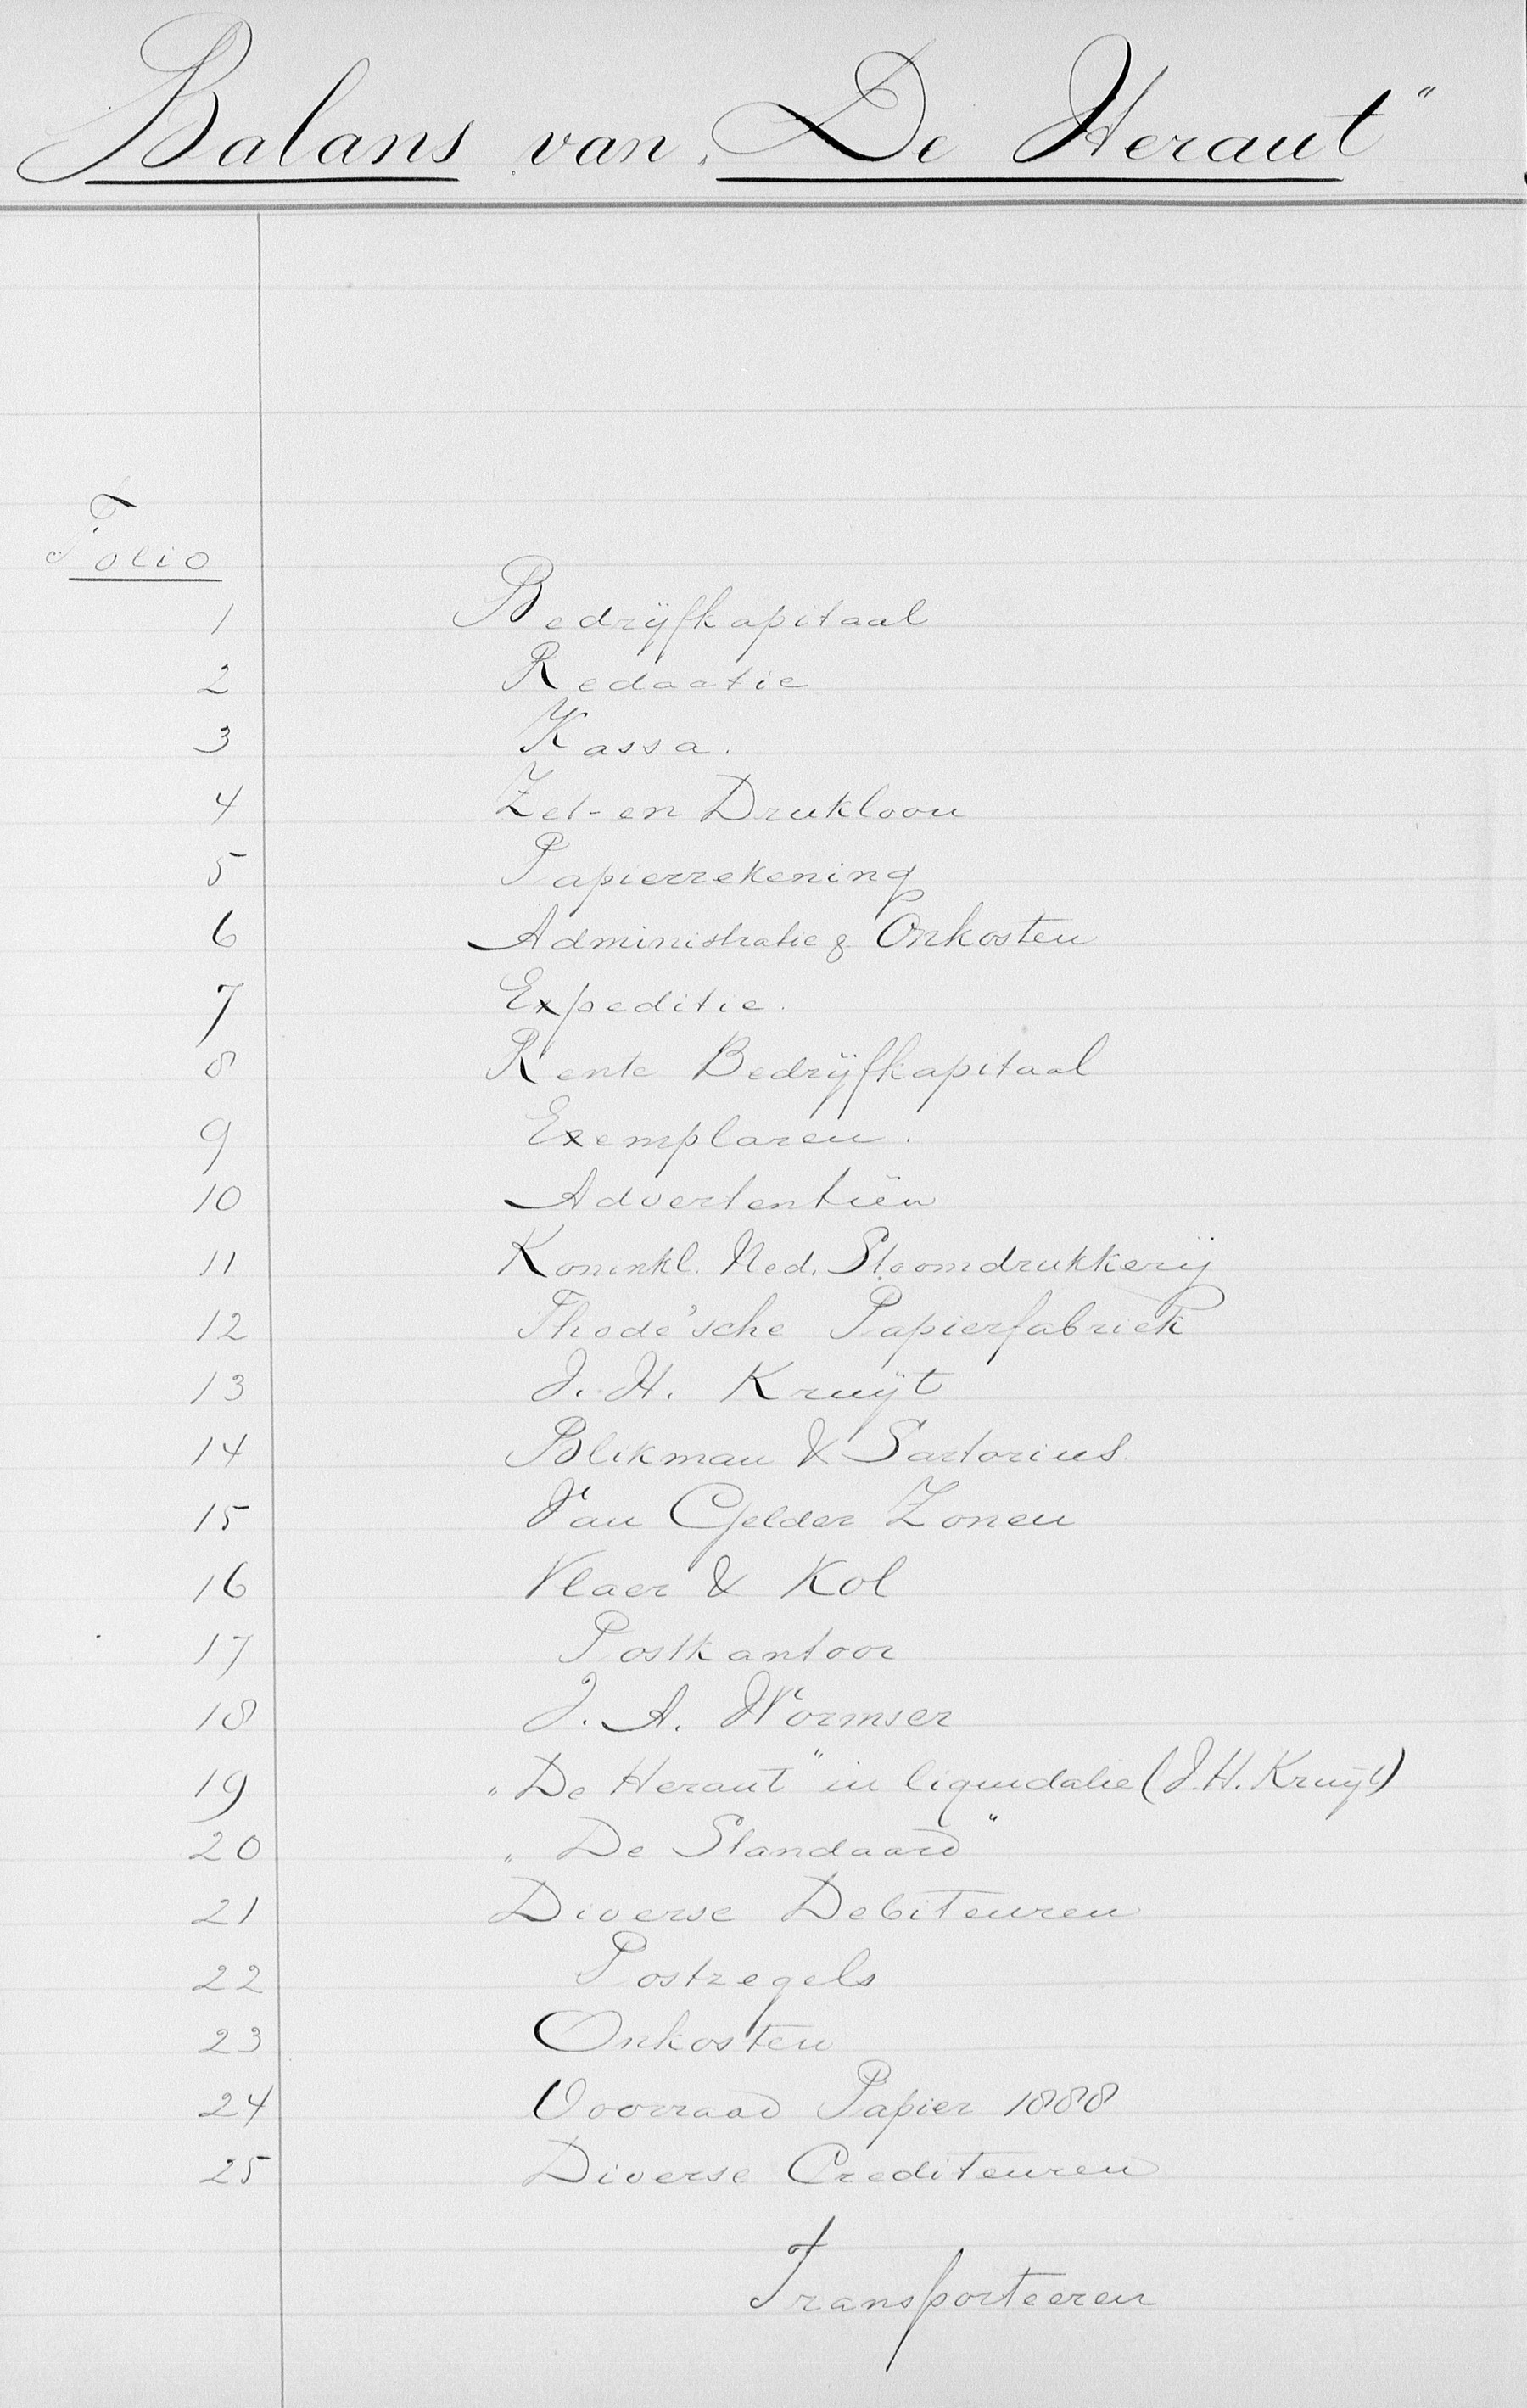 Balans van „De Heraut“
Folio
1 Bedrijfkapitaal
2 Redactie
3 Kassa.
4 Zet- en Drukloon
5 Papierrekening
6 Administratie & Onkosten
7 Expeditie.
8 Rente Bedrijfkapitaal
9 Exemplaren.
10 Advertentiën
11 Koninkl. Ned. Stoomdrukkerij
12 Thode'sche Papierfabriek
13 J. H. Kruijt
14 Blikman & Sartorius.
15 Van Gelder Zonen
16 Vlaer & Kol
17 Postkantoor
18 J. A. Wormser
19 „De Heraut“ in liquidatie (J. H. Kruijt)
20 „De Standaard“
21 Diverse Debiteuren
22 Postzegels
23 Onkosten
24 Voorraad Papier 1888
25 Diverse Crediteuren
Transporteeren